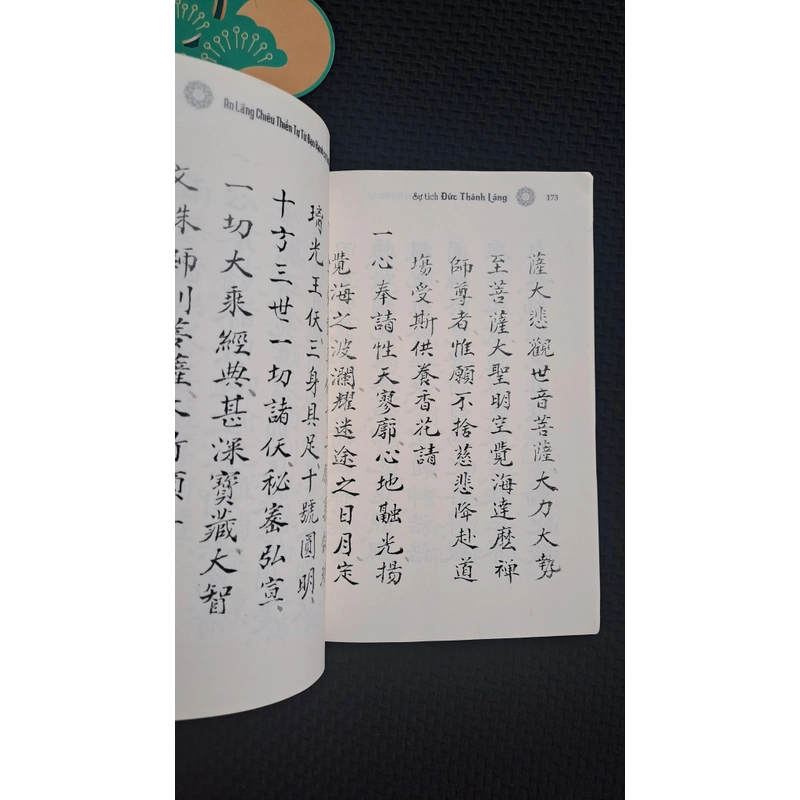 An Lãng Chiêu Thiền Tự Từ Đạo Hạnh
璃光王仸三身具足十號圓明
十方三世一切諸仸秘密弘宣
一切大乘經典甚深寶藏大智
文殊師利菩薩大行願
Sự tích Đức Thánh Láng 173
薩大悲觀世音菩薩大力大勢
至菩薩大聖明空覺海達麽禪
師尊者惟願不捨慈悲降赴道
塲受斯供養香花請
一心奉請性天寥廓心地融光揚
覺海之波瀾耀迷途之日月定